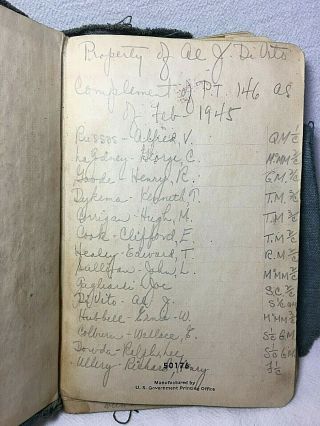 Property of Al J. DiVito
Complement of P.T. 146 as
of Feb 1945
Russos - Alfred, V. Q.M ½
George, C. M.MM ½
Goode - Henry, R. G.M. ¾
Dykema - Kenneth T. T.M. ¾
Corrigan - Hugh, M. T.M ¾
Cook - Clifford, E. T.M ½
Healey - Edward, T. R.M ½
Sullivan - John, L. M.MM ½
Pugliardi Joe S.C ¾
DiVito - Al J. S½
Hubbell - W. M.MM ½
Colburn - Wallace, E. S½ G.M
Dowda - S½ G.M
Ullery - Richard
50176
Manufactured by
U. S. Government Printing Office